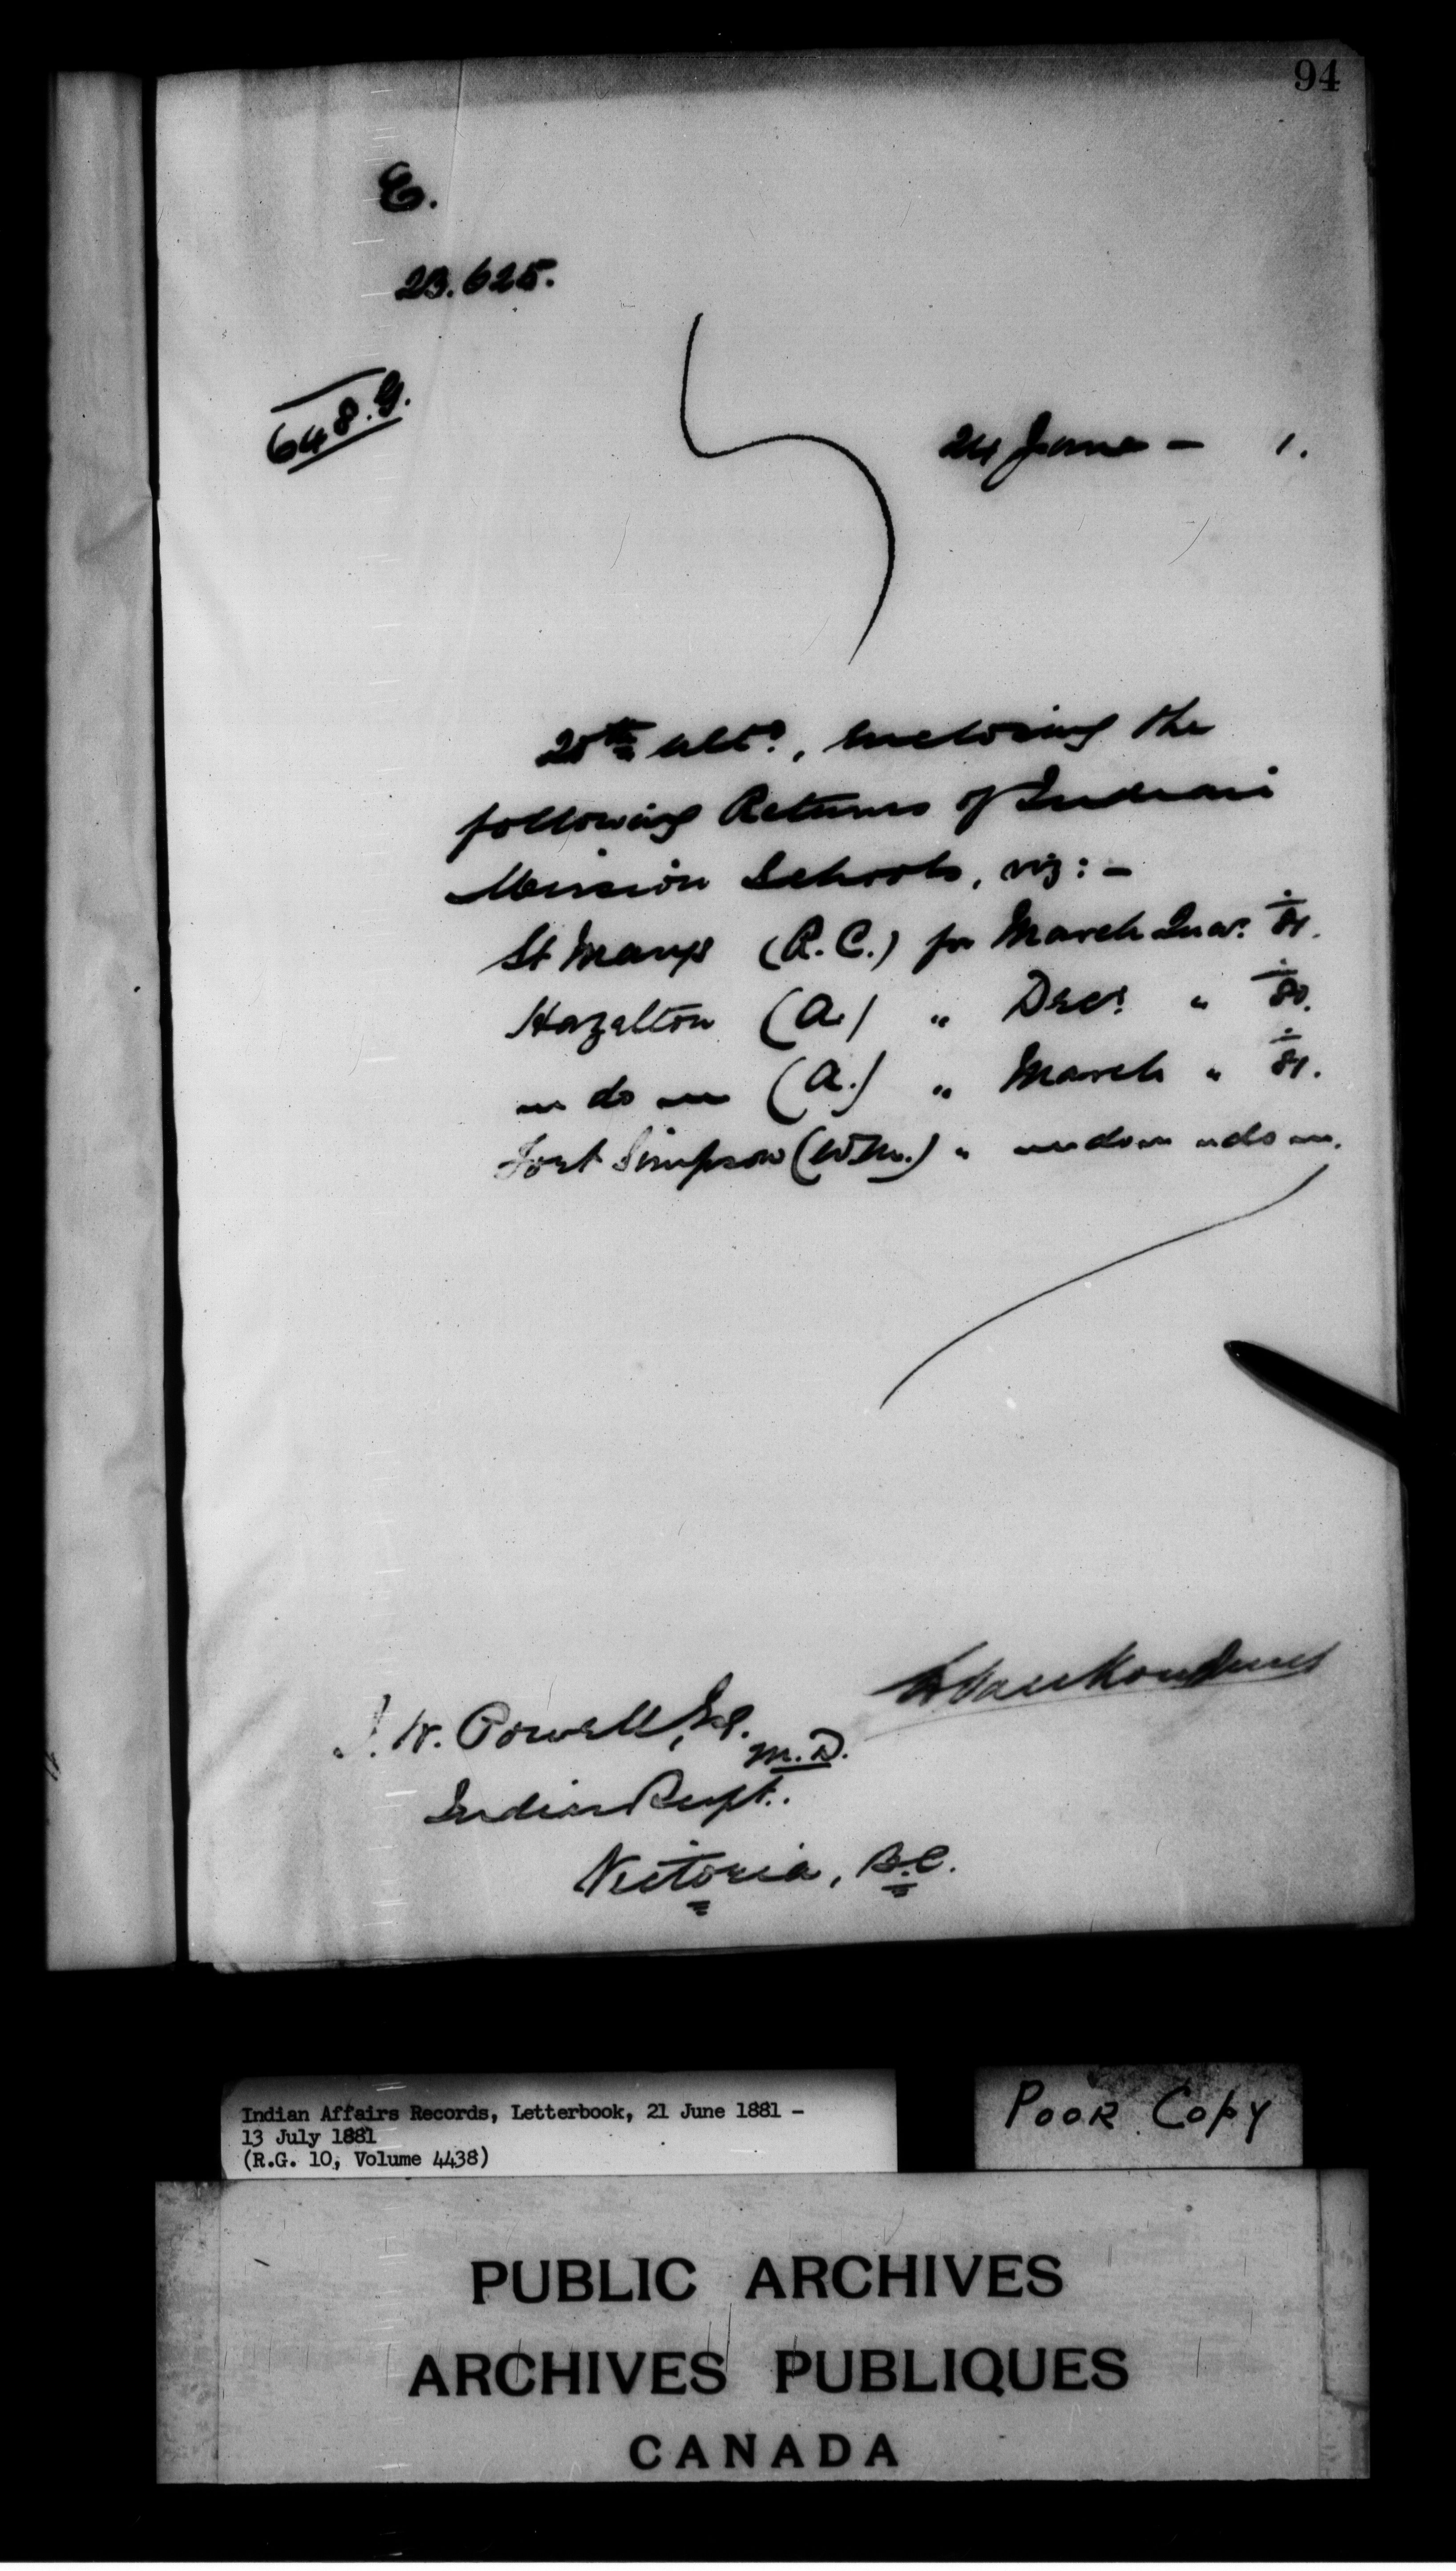 94
E.
23.625.
648.G.
24 June - 1.
20th ulto., enclosing the
following Returns of Indian
Mission Schools, viz: -
St Marys (R.C.) for March Quar. 81.
Hazelton (A.) " Decr. " 80.
" do " (A.) " March " 81.
Fort Simpson (W.M.) " " do " " do ".
I. W. Powell, Esq.
M.D.
Indian Supt.
Victoria, B.C.
Indian Affairs Records, Letterbook, 21 June 1881 -
13 July 1881
(R.G. 10, Volume 4438)
POOR COPY
PUBLIC ARCHIVES
ARCHIVES PUBLIQUES
CANADA